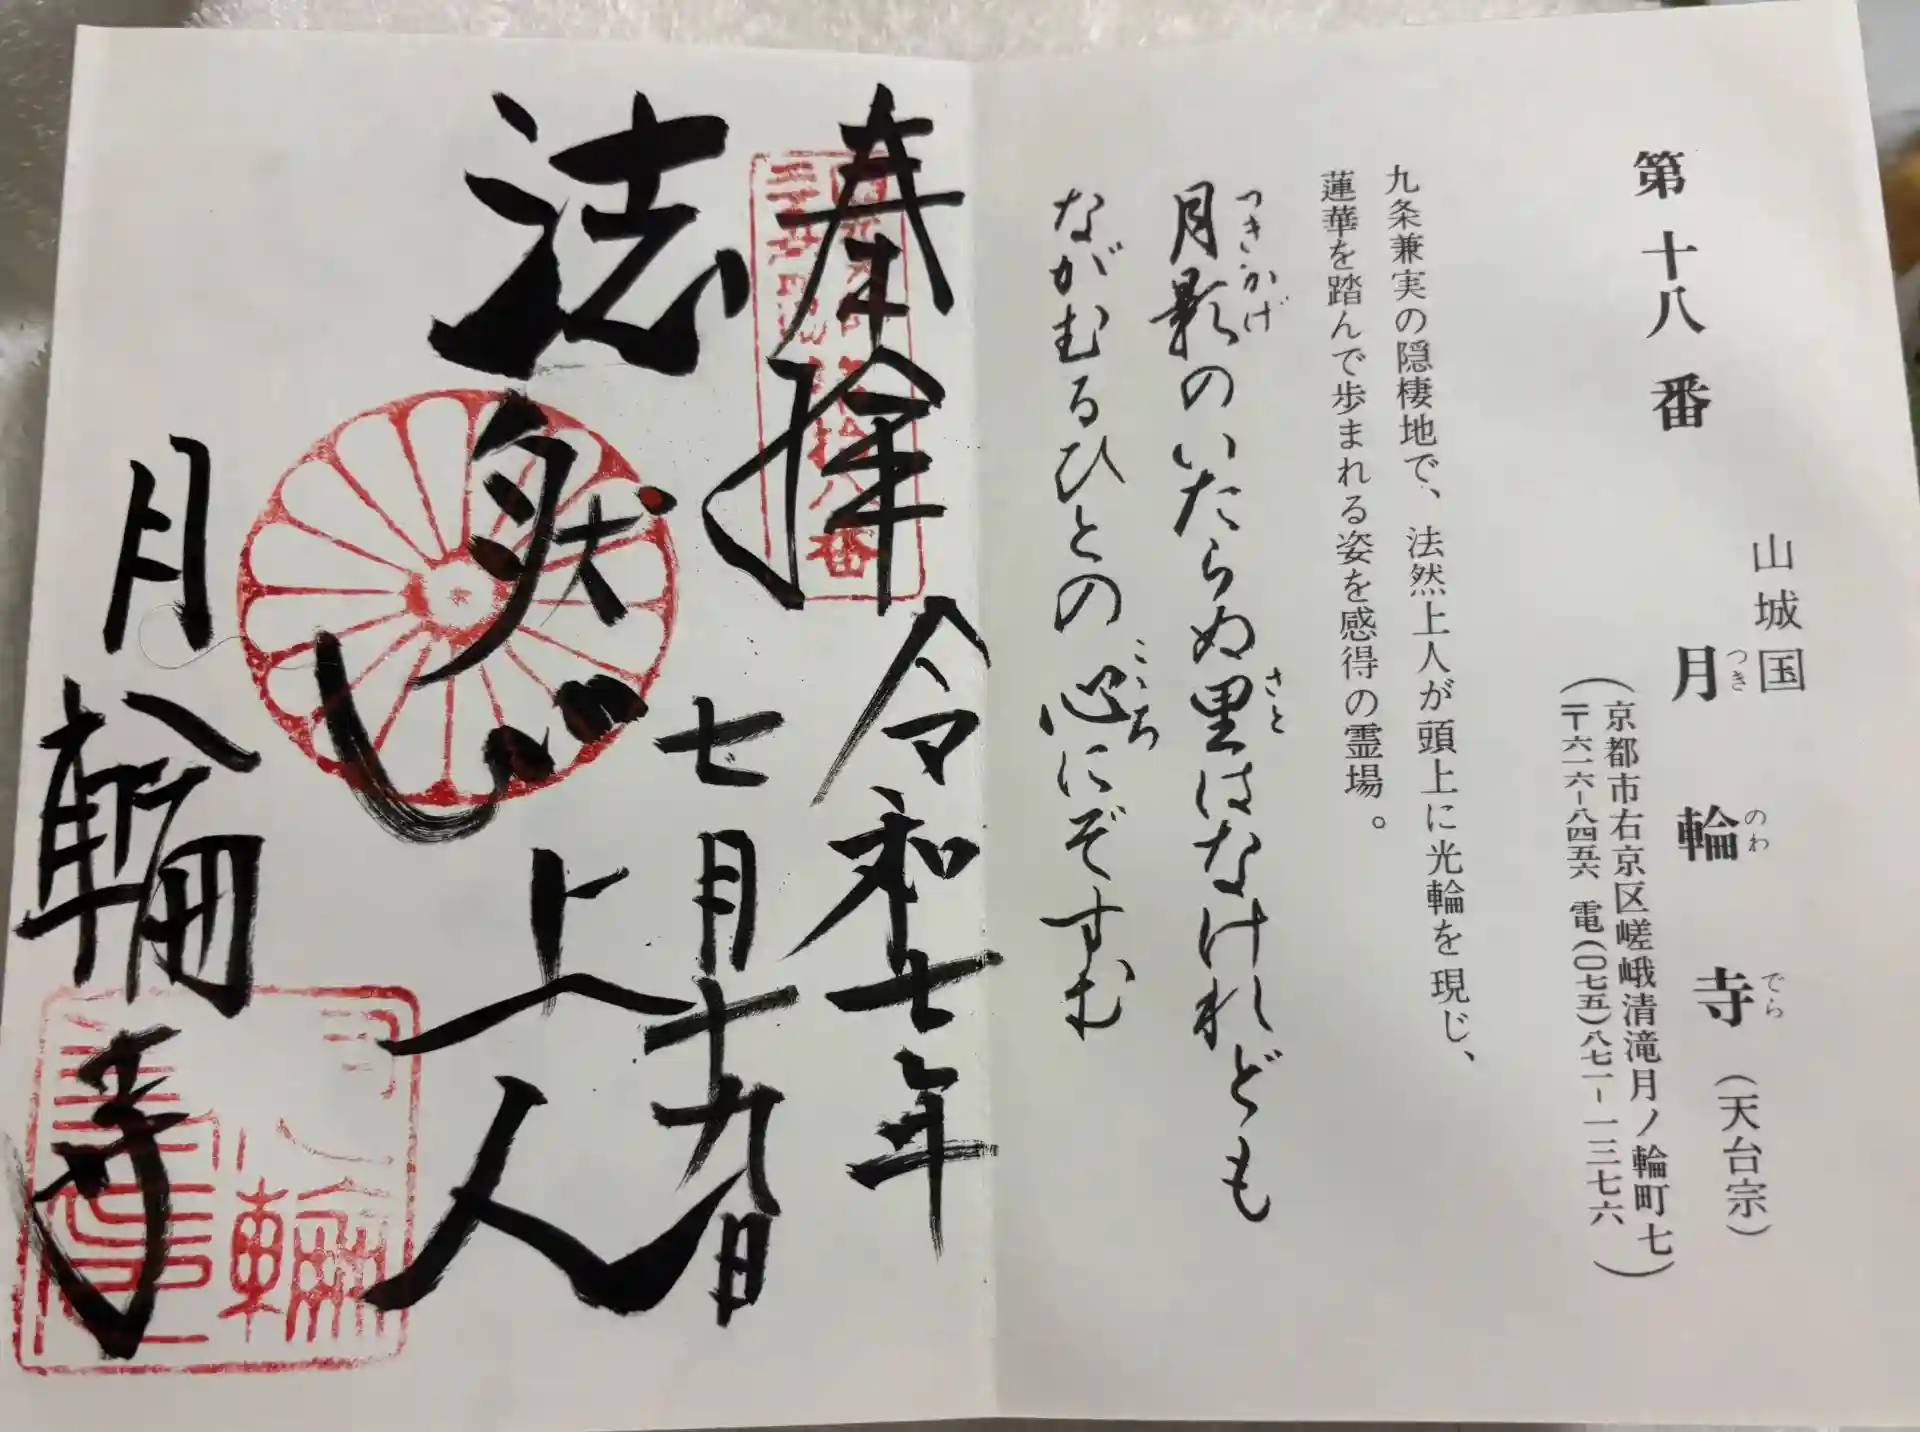 第十八番
山城国
月輪寺(天台宗)
つきのわでら
(京都市右京区嵯峨清滝月ノ輪町七
〒六一六-八四五六 電(〇七五)八七一-一三七六)
九条兼実の隠棲地で、法然上人が頭上に光輪を現じ、
蓮華を踏んで歩まれる姿を感得の霊場。
月影のいたらぬ里はなけれども
つきかげ
さと
ながむるひとの心にぞすむ
こころ
奉拝 令和七年
七月十九日
法然上人
月輪寺